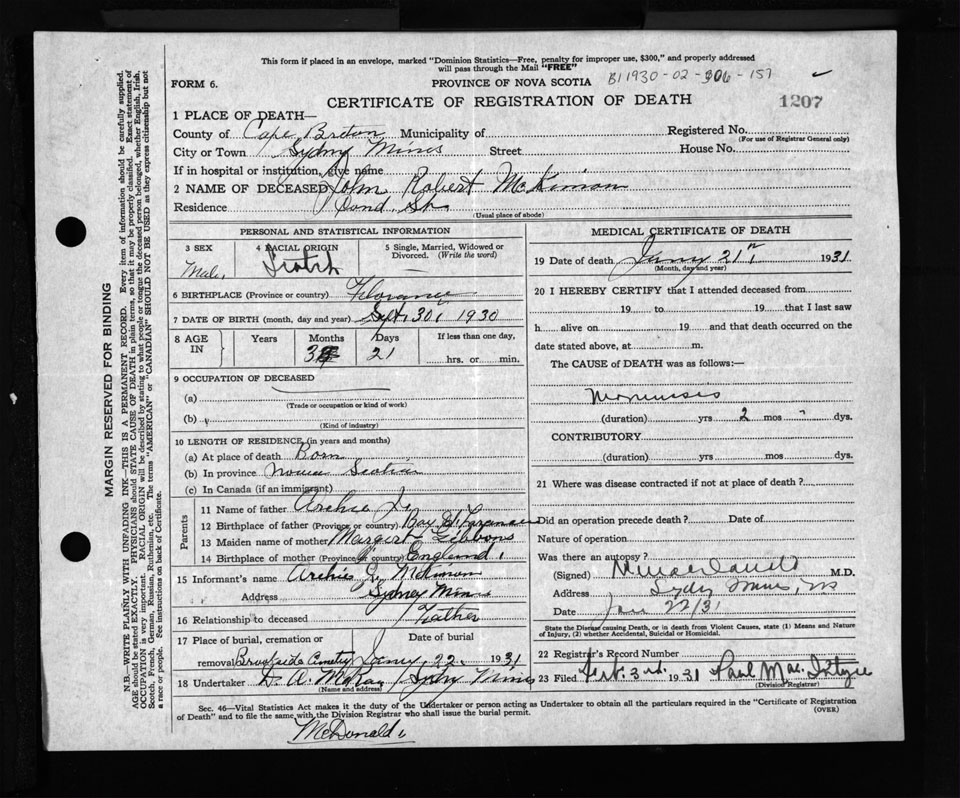 This form if placed in an envelope, marked "Dominion Statistics—Free, penalty for improper use, $300," and properly addressed
will pass through the Mail "FREE"
FORM 6.
PROVINCE OF NOVA SCOTIA
B1 1930-02-306-157
CERTIFICATE OF REGISTRATION OF DEATH
1207
1 PLACE OF DEATH—
County of Cape Breton Municipality of Registered No.
(For use of Registrar General only)
City or Town Sydny Mines Street House No.
If in hospital or institution, give name
2 NAME OF DECEASED John Robert McKinnon
Residence Pond St
(Usual place of abode)
PERSONAL AND STATISTICAL INFORMATION
3 SEX 4 RACIAL ORIGIN 5 Single, Married, Widowed or Divorced. (Write the word)
Male, Scotch
6 BIRTHPLACE (Province or country) Florance
7 DATE OF BIRTH (month, day and year) Sept. 30, 1930
8 AGE IN Years Months Days If less than one day,
3 21 hrs. or min.
9 OCCUPATION OF DECEASED
(a)
(Trade or occupation or kind of work)
(b)
(Kind of industry)
10 LENGTH OF RESIDENCE (in years and months)
(a) At place of death Born
(b) In province Nova Scotia
(c) In Canada (if an immigrant)
Parents
11 Name of father Archie
12 Birthplace of father (Province or country) Bay St
13 Maiden name of mother Margert Gibbons
14 Birthplace of mother (Province or country) England,
15 Informant's name Archie McKinnon
Address Sydney Mines
16 Relationship to deceased Father
17 Place of burial, cremation or Date of burial
removal Brookside Cemetry Jany, 22. 1931
18 Undertaker D. A. McKay Sydny Mines
(Name and address)
MEDICAL CERTIFICATE OF DEATH
19 Date of death Jany 21 1931
(Month, day and year)
20 I HEREBY CERTIFY that I attended deceased from
19 to 19 that I last saw
h alive on 19 and that death occurred on the
date stated above, at m.
The CAUSE of DEATH was as follows:—
(duration) yrs 2 mos dys.
CONTRIBUTORY
(duration) yrs mos dys.
21 Where was disease contracted if not at place of death?
Did an operation precede death? Date of
Nature of operation
Was there an autopsy?
(Signed) M.D.
Address Sydny Mines, NS
Date Jan 22/31
State the Disease causing Death, or in death from Violent Causes, state (1) Means and Nature
of Injury, (2) whether Accidental, Suicidal or Homicidal.
22 Registrar's Record Number
23 Filed Feb. 3rd. 1931 Paul Mac Intyre
(Division Registrar)
Sec. 46—Vital Statistics Act makes it the duty of the Undertaker or person acting as Undertaker to obtain all the particulars required in the "Certificate of Registration
of Death" and to file the same with the Division Registrar who shall issue the burial permit.
(OVER)
McDonald
MARGIN RESERVED FOR BINDING
N.B.—WRITE PLAINLY WITH UNFADING INK—THIS IS A PERMANENT RECORD. Every item of information should be carefully supplied.
AGE should be stated EXACTLY. PHYSICIANS should STATE CAUSE OF DEATH in plain terms, so that it may be properly classified. Exact statement of
OCCUPATION is very important. RACIAL ORIGIN will be described by stating to what people or tongue the deceased person belonged, whether English, Irish,
Scotch, French, German, Russian, Ruthenian, etc. The terms "AMERICAN" or "CANADIAN" SHOULD NOT BE USED as they express citizenship but not
a race or people. See instructions on back of Certificate.